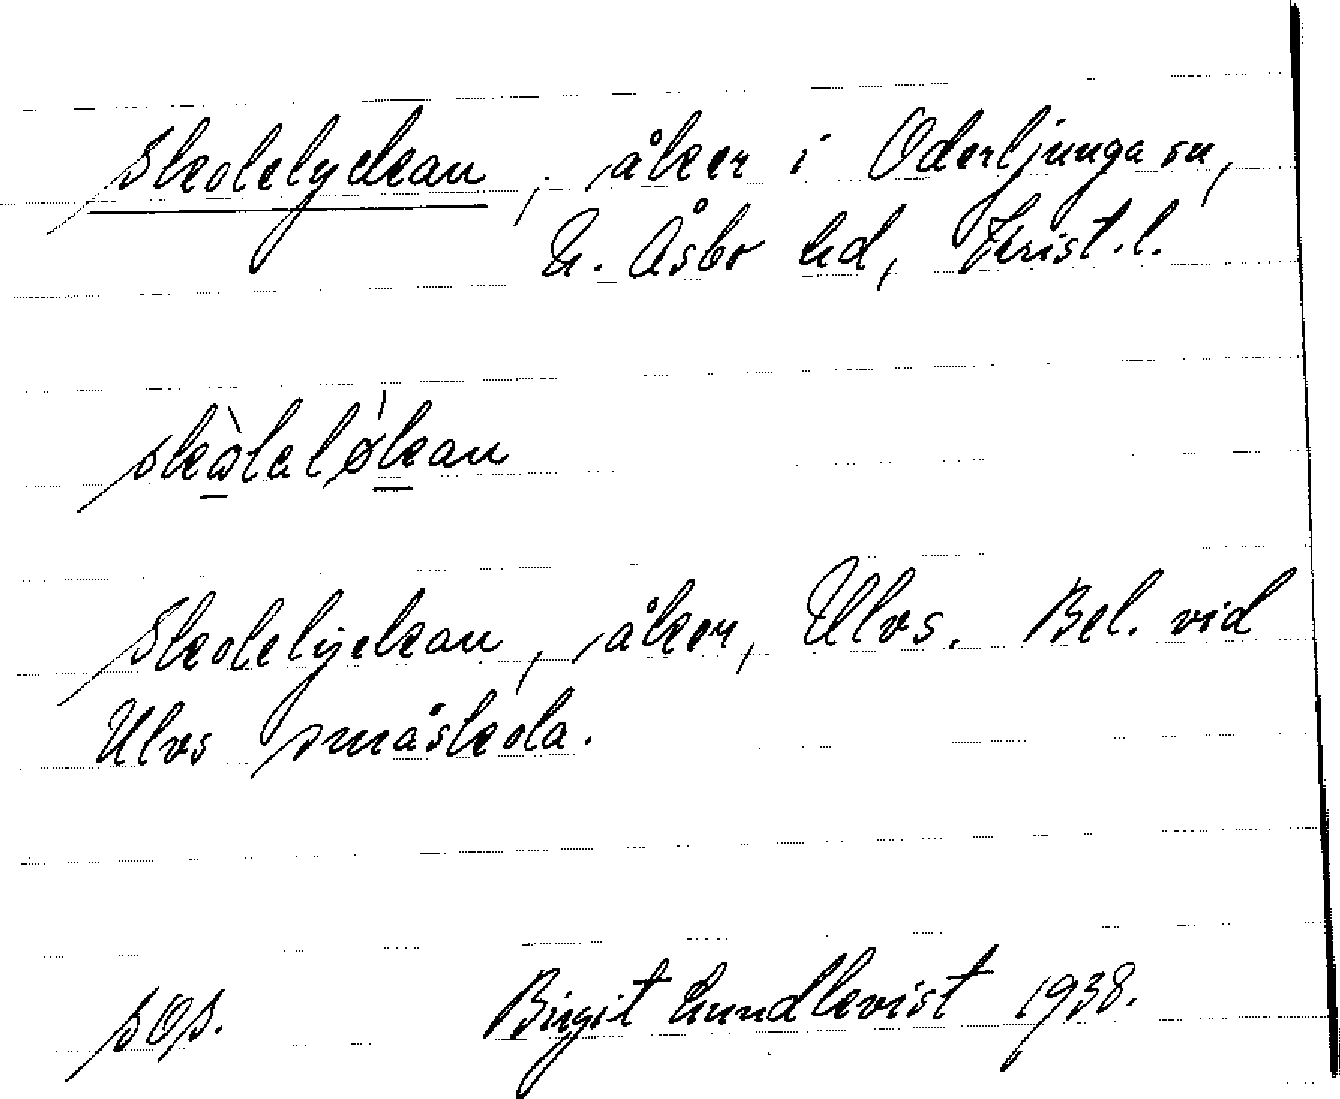 Skolelyckan, åker i Oderljunga sn,
N. Åsbo hd, Krist. l.
skòlaløkan
Skolelyckan, åker, Ulvs. Bel. vid
Ulvs småskola.
s Os. Birgit Lundkvist 1938.